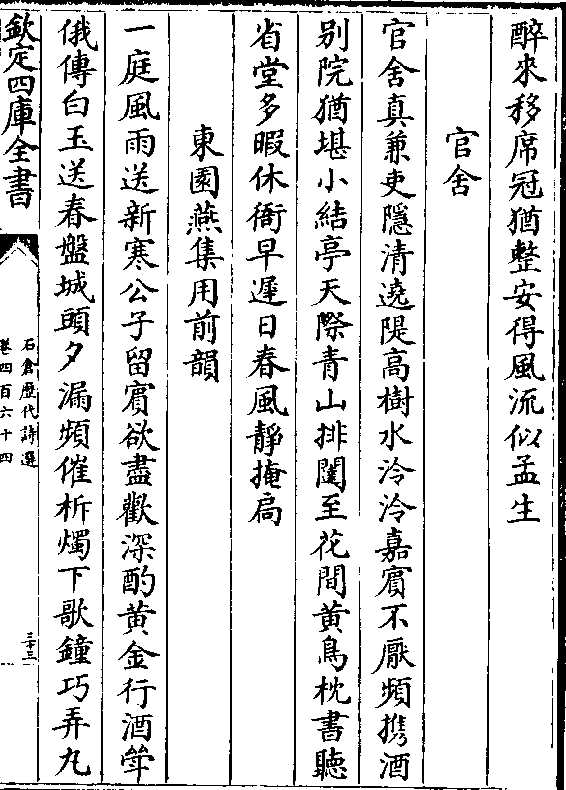 醉來移席冠猶整安得風流似孟生
官舍
官舍真兼吏隱清遶隄高樹水泠泠嘉賓不厭頻携酒
别院猶堪小結亭天際青山排闥至花間黄鳥枕書聽
省堂多暇休衙早遲日春風靜掩扃
東園燕集用前韻
一庭風雨送新寒公子留賓欲盡歡深酌黄金行酒斝
俄傳白玉送春盤城頭夕漏頻催柝燭下歌鐘巧弄丸
欽定四庫全書
石倉歷代詩選
卷四百六十四
三十三